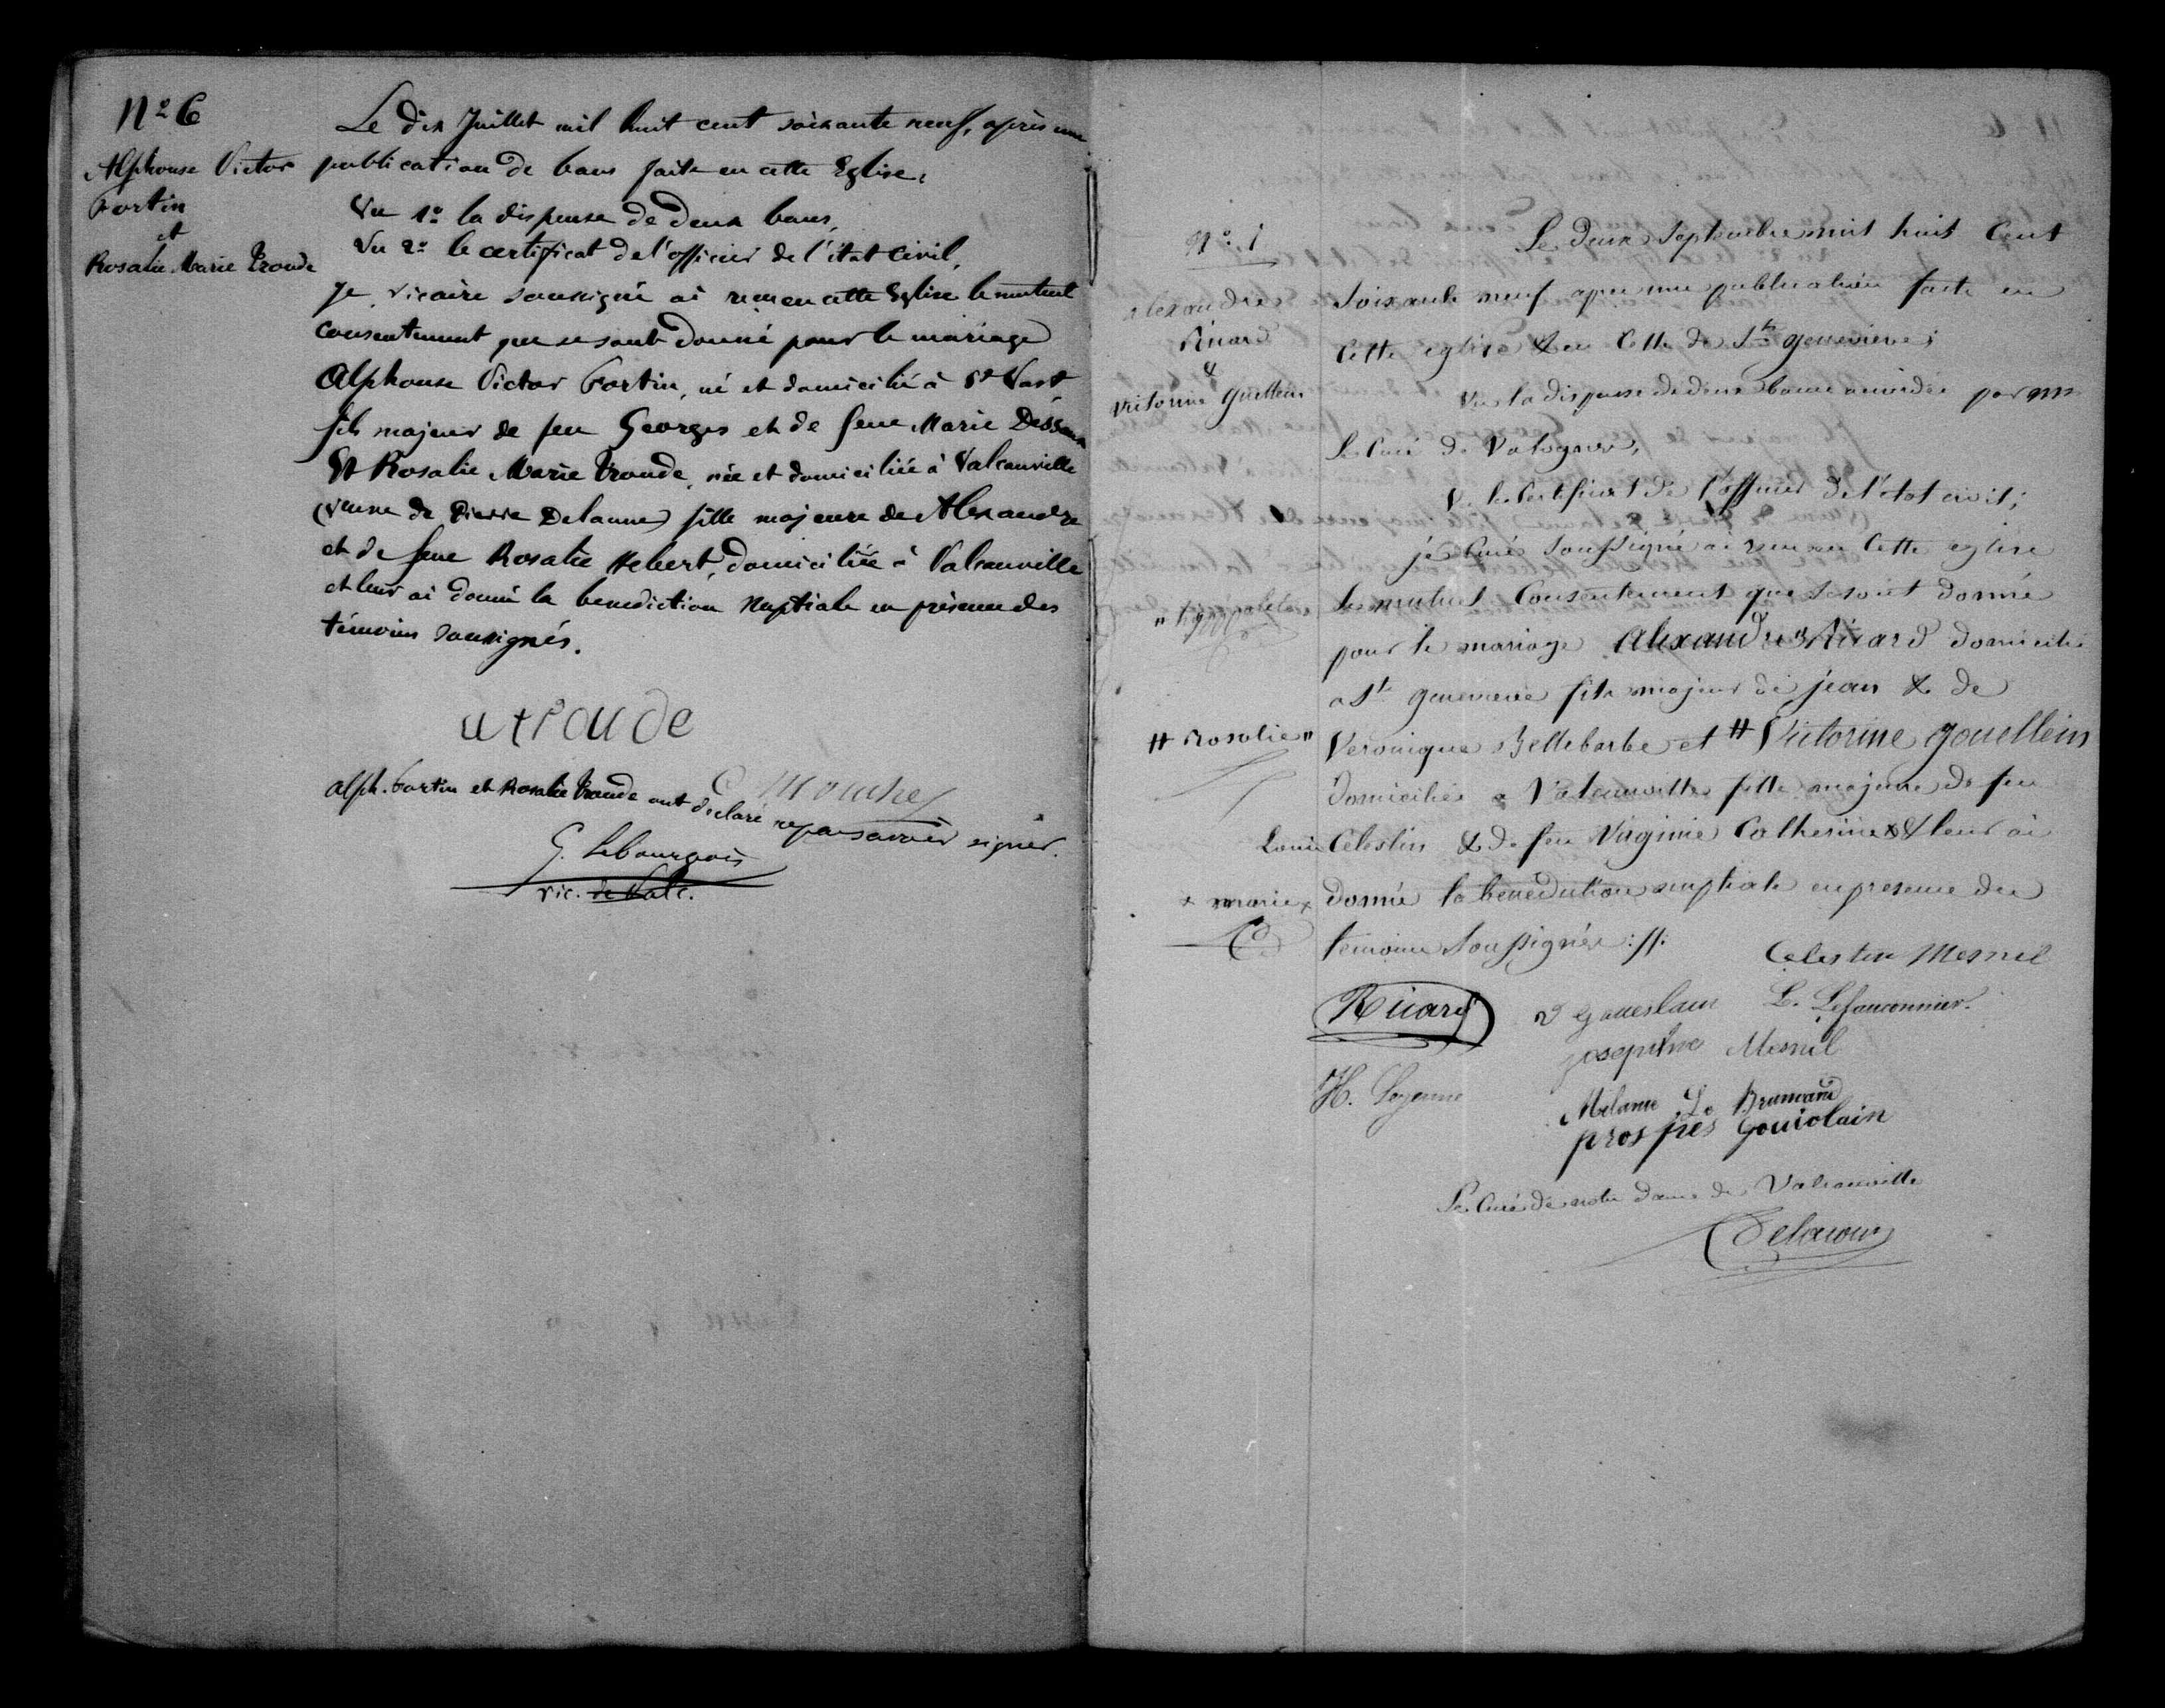 N° 6
Alphonse Victor
Fortin
et
Rosalie Marie Troude
Le dix Juillet mil huit cent soixante neuf, après une
publication de bans faite en cette Eglise,
Vu 1° la dispense de deux bans,
Vu 2° le certificat de l'officier de l'état civil,
Je, vicaire soussigné ai reçu en cette Eglise le mutuel
consentement que se sont donné pour le mariage
Alphonse Victor Fortin, né et domicilié à St Vast,
fils majeur de feu Georges et de feue Marie
Et Rosalie Marie Troude, née et domiciliée à Valcanville
(veuve de Pierre Delaune) fille majeure de Alexandre
et de feue Rosalie Hebert, domiciliée à Valcanville
et leur ai donné la benediction nuptiale en présence des
témoins soussignés.
a troude
Mouchel
alph. Fortin et Rosalie Troude ont déclaré ne pas savoir signer.
G. Lebourgeois
vic. de Valc.
N° 1
alexandre
Ricard
&
Victorine
Le deux Septembre mil huit Cent
Soixante neuf apres une publication faite en
Cette eglise & en Celle de Ste genevieve;
Vu la dispense de deux bans accordée par mr
Le Curé de Valognes,
V. le Certificat de l'officier de l'état civil;
je Curé Soussigné ai reçu en Cette eglise
Le mutuel Consentement que Se sont donné
pour le mariage Alexandre " Ricard domicilié
a Ste genevieve fils majeur de jean & de
# Rosalie "
Veronique Bellebarbe et # Victorine gouellein
domiciliée a Valcanville fille majeure de feu
Louis Celestin & de feu Virginie Catherine x & leur ai
x marie x
donné la benediction nuptiale en presence des
temoins Soussignés :ff:
Celestin Mesnil
Ricard
V goueslain
L. Lefauconnier
josephine Mesnil
H.
Melanie Le Brumand
prosper
Le Curé de notre Dame de Valcanville
Delacour